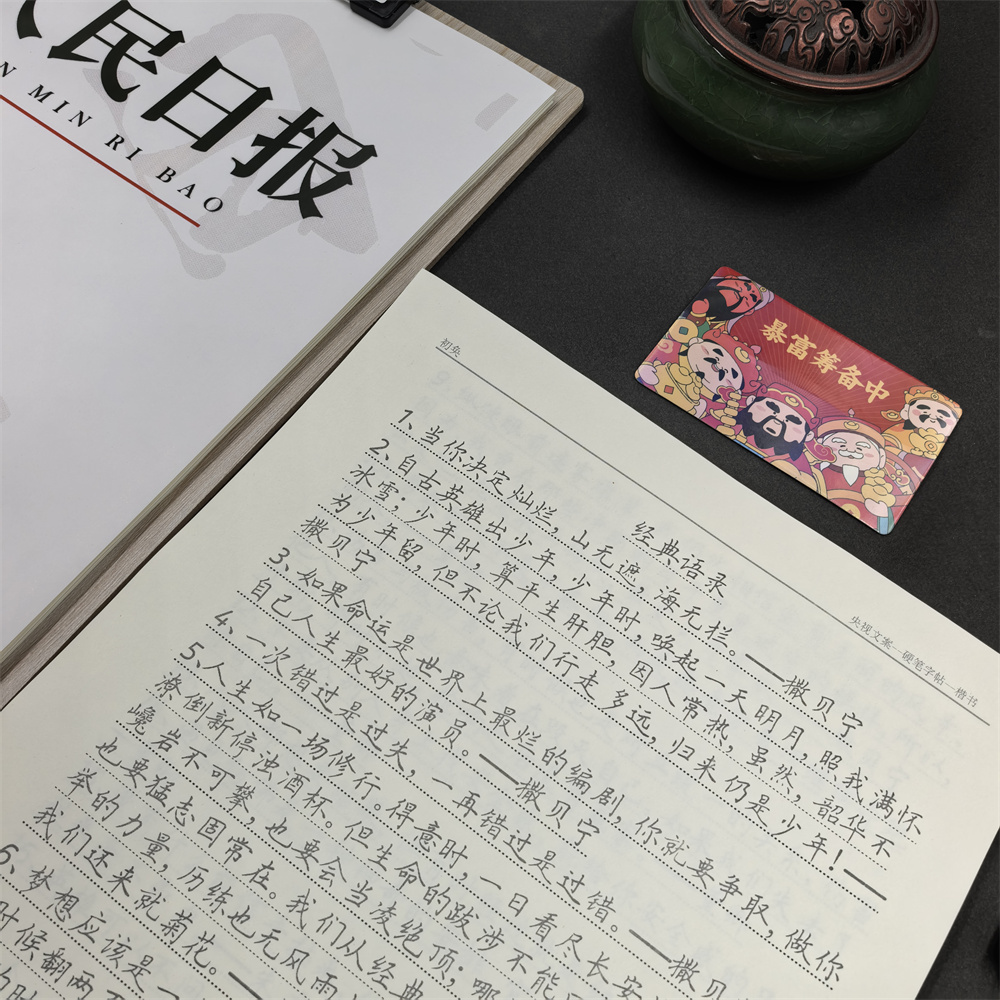 人民日报
N MIN RI BAO
暴富筹备中
央视文案--硬笔字帖--楷书
经典语录
1、当你决定灿烂，山无遮，海无拦。——撒贝宁
2、自古英雄出少年，少年时，唤起一天明月，照我满怀
冰雪；少年时，算平生肝胆，因人常热，虽然，韶华不
为少年留，但不论我们行走多远，归来仍是少年！——
撒贝宁
3、如果命运是世界上最烂的编剧，你就要争取，做你
自己人生最好的演员。——撒贝宁
4、一次错过是过失，一再错过是过错。——撒贝
5、人生如一场修行。得意时，一日看尽长安
潦倒新停浊酒杯。但生命的跋涉不能
巉岩不可攀，也要会当凌绝顶；哪
也要猛志固常在。我们从经典
举的力量，历练也无风雨
我们还来就菊花。——
6、梦想应该是一
时候翻两